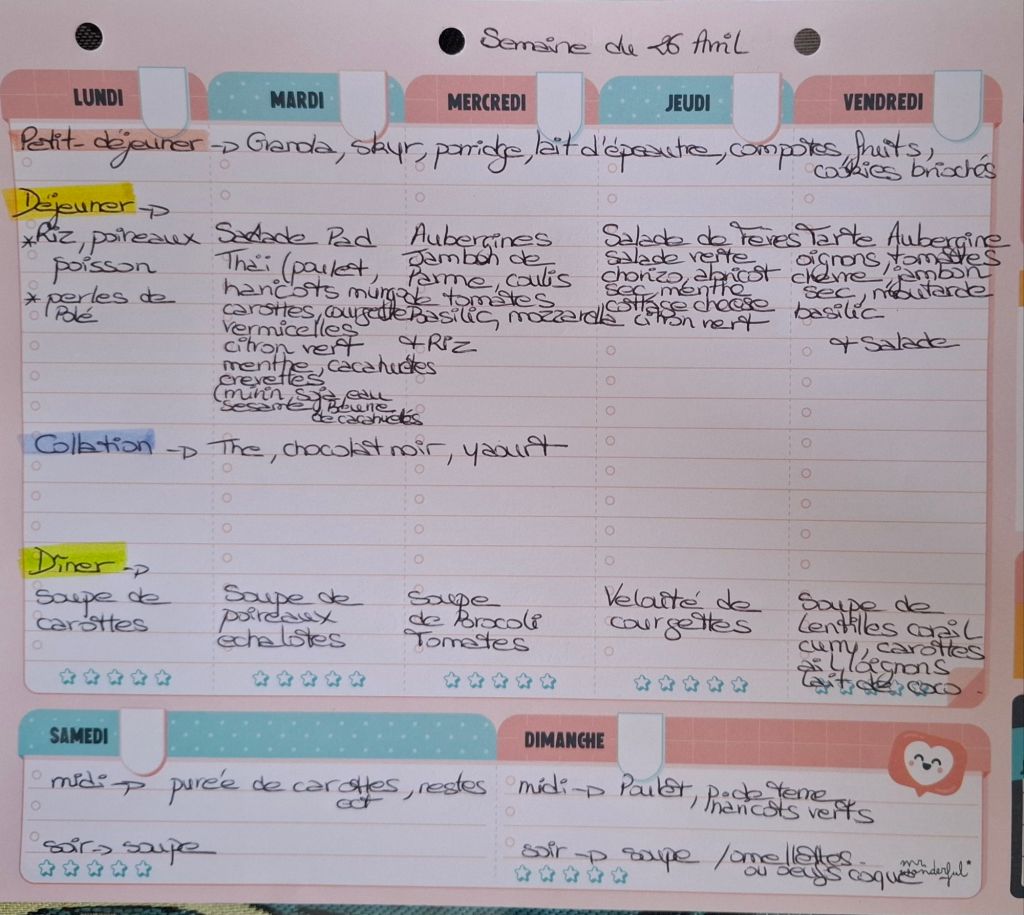 Semaine du 26 Avril
LUNDI MARDI MERCREDI JEUDI VENDREDI
Petit-déjeuner -> Granola, skyr, porridge, lait d'épeautre, compotes, fruits,
cookies briochés
Déjeuner ->
*Riz, poireaux
poisson
* perles de
Salade Pad
Thaï (poulet,
haricots mungo
carottes, courgette
vermicelles
citron vert
menthe, cacahuètes
crevettes
(mirin, soja, eau
sesame, Beurre
de cacahuètes
Aubergines
Jambon de
Parme, coulis
de tomates
Basilic, mozzarella
+ Riz
Salade de Fèves
salade verte
chorizo, abricot
sec, menthe
cottage cheese
citron vert
Tarte Aubergine
oignons, tomates
chèvre, jambon
sec, moutarde
basilic
+ Salade
Collation -> The, chocolat noir, yaourt
Dîner ->
Soupe de
carottes
Soupe de
poireaux
echalotes
Soupe
de Brocoli
Tomates
Velouté de
courgettes
Soupe de
Lentilles corail
curry, carottes
ail, oignons
lait de coco.
SAMEDI
midi -> purée de carottes, restes
ect
soir -> soupe
DIMANCHE
midi -> Poulet, p. de terre
haricots verts
soir -> soupe / omellettes.
ou oeufs coque
mr wonderful*